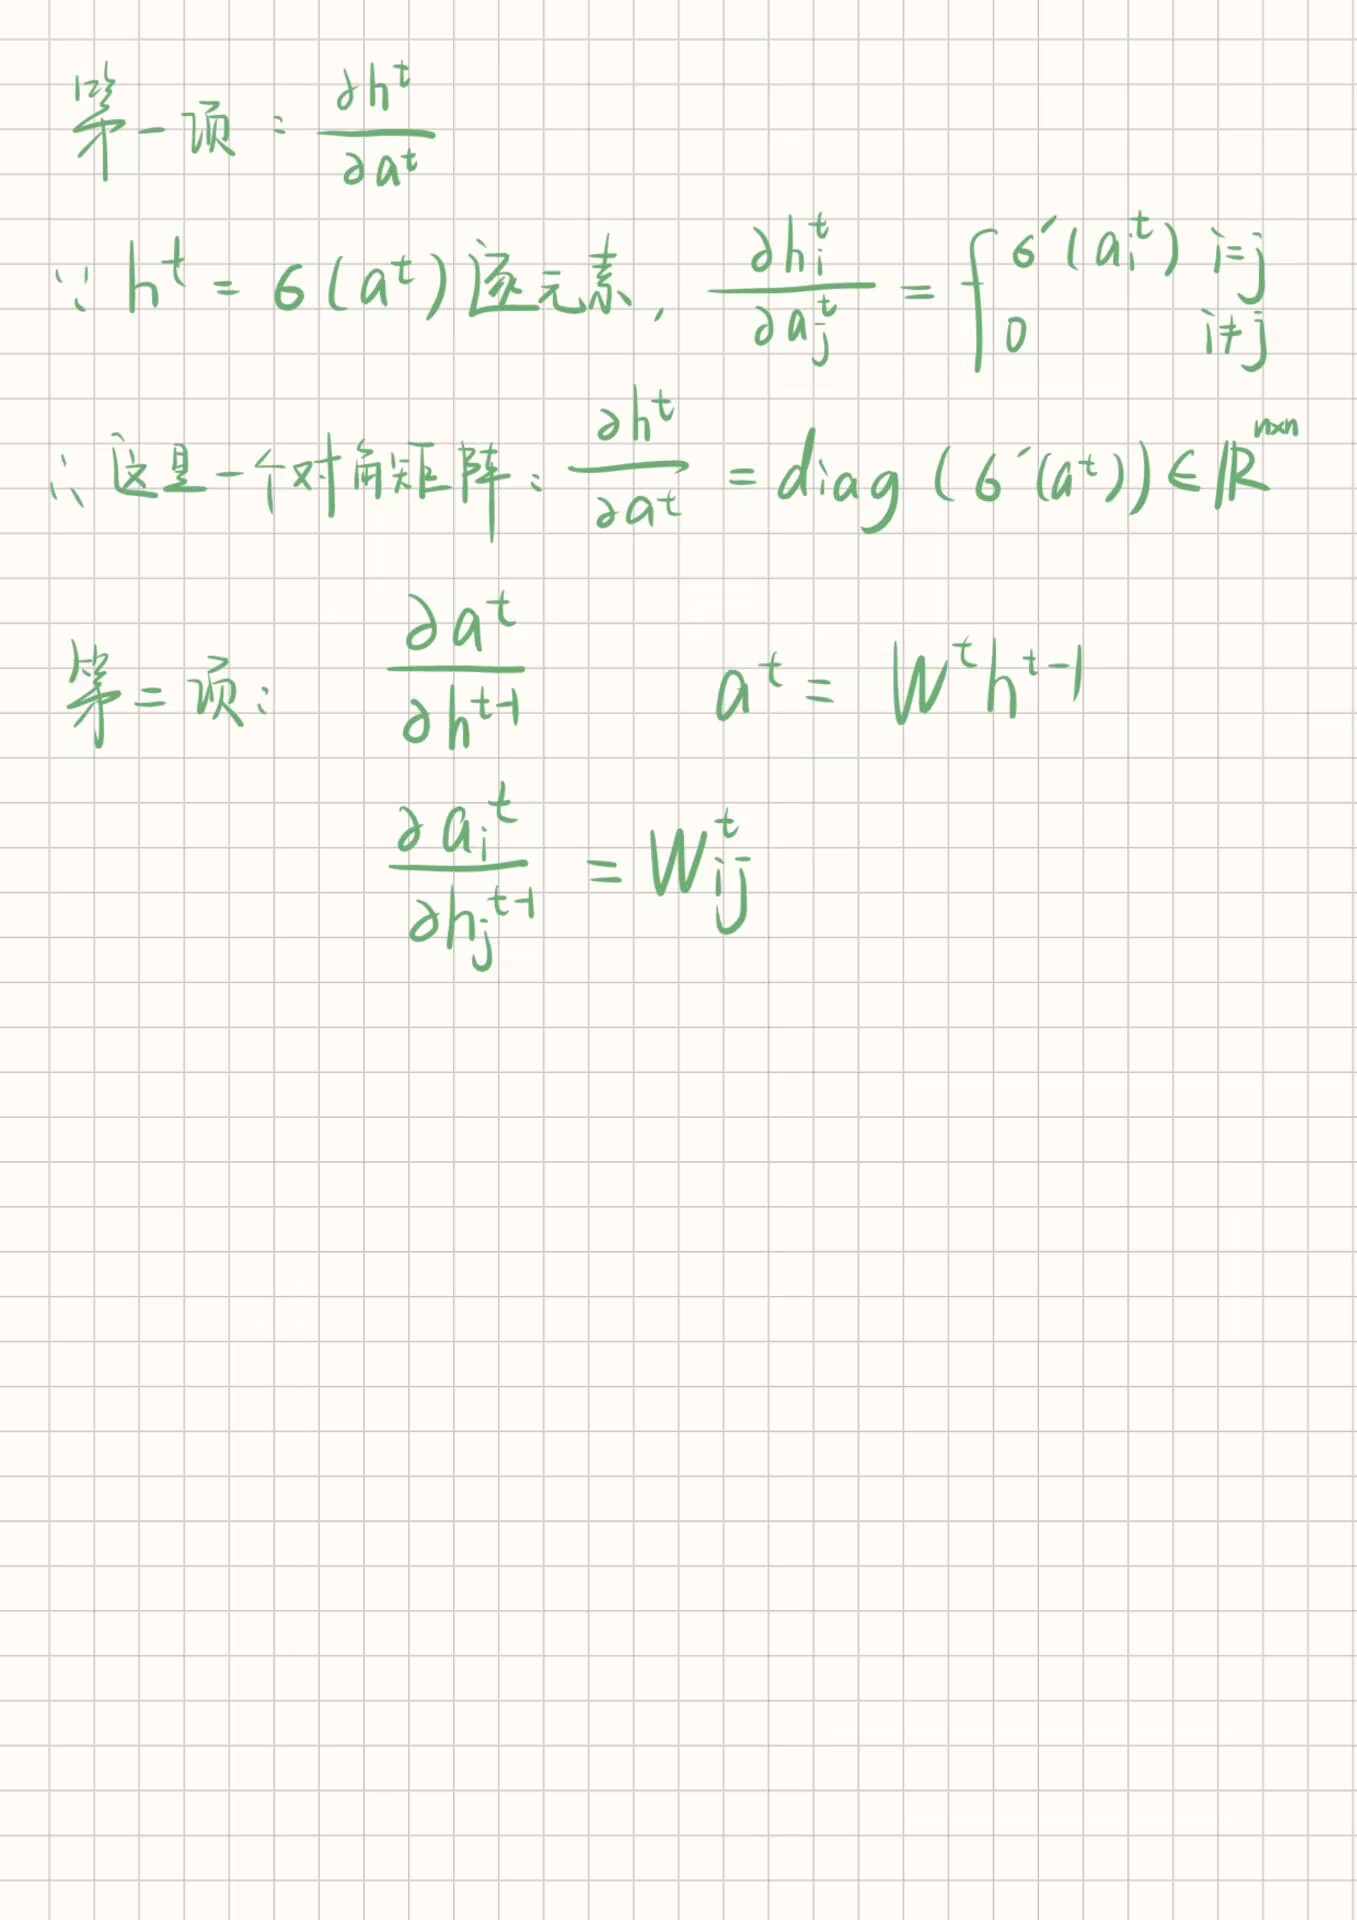 第一项: ∂hᵗ/∂aᵗ
∵ hᵗ = σ(aᵗ) 逐元素, ∂hᵢᵗ/∂aⱼᵗ = { σ′(aᵢᵗ) i=j
0 i≠j
∴ 这是一个对角矩阵: ∂hᵗ/∂aᵗ = diag(σ′(aᵗ)) ∈ ℝⁿˣⁿ
第二项: ∂aᵗ/∂hᵗ⁻¹ aᵗ = Wᵗhᵗ⁻¹
∂aᵢᵗ/∂hⱼᵗ⁻¹ = Wᵢⱼᵗ